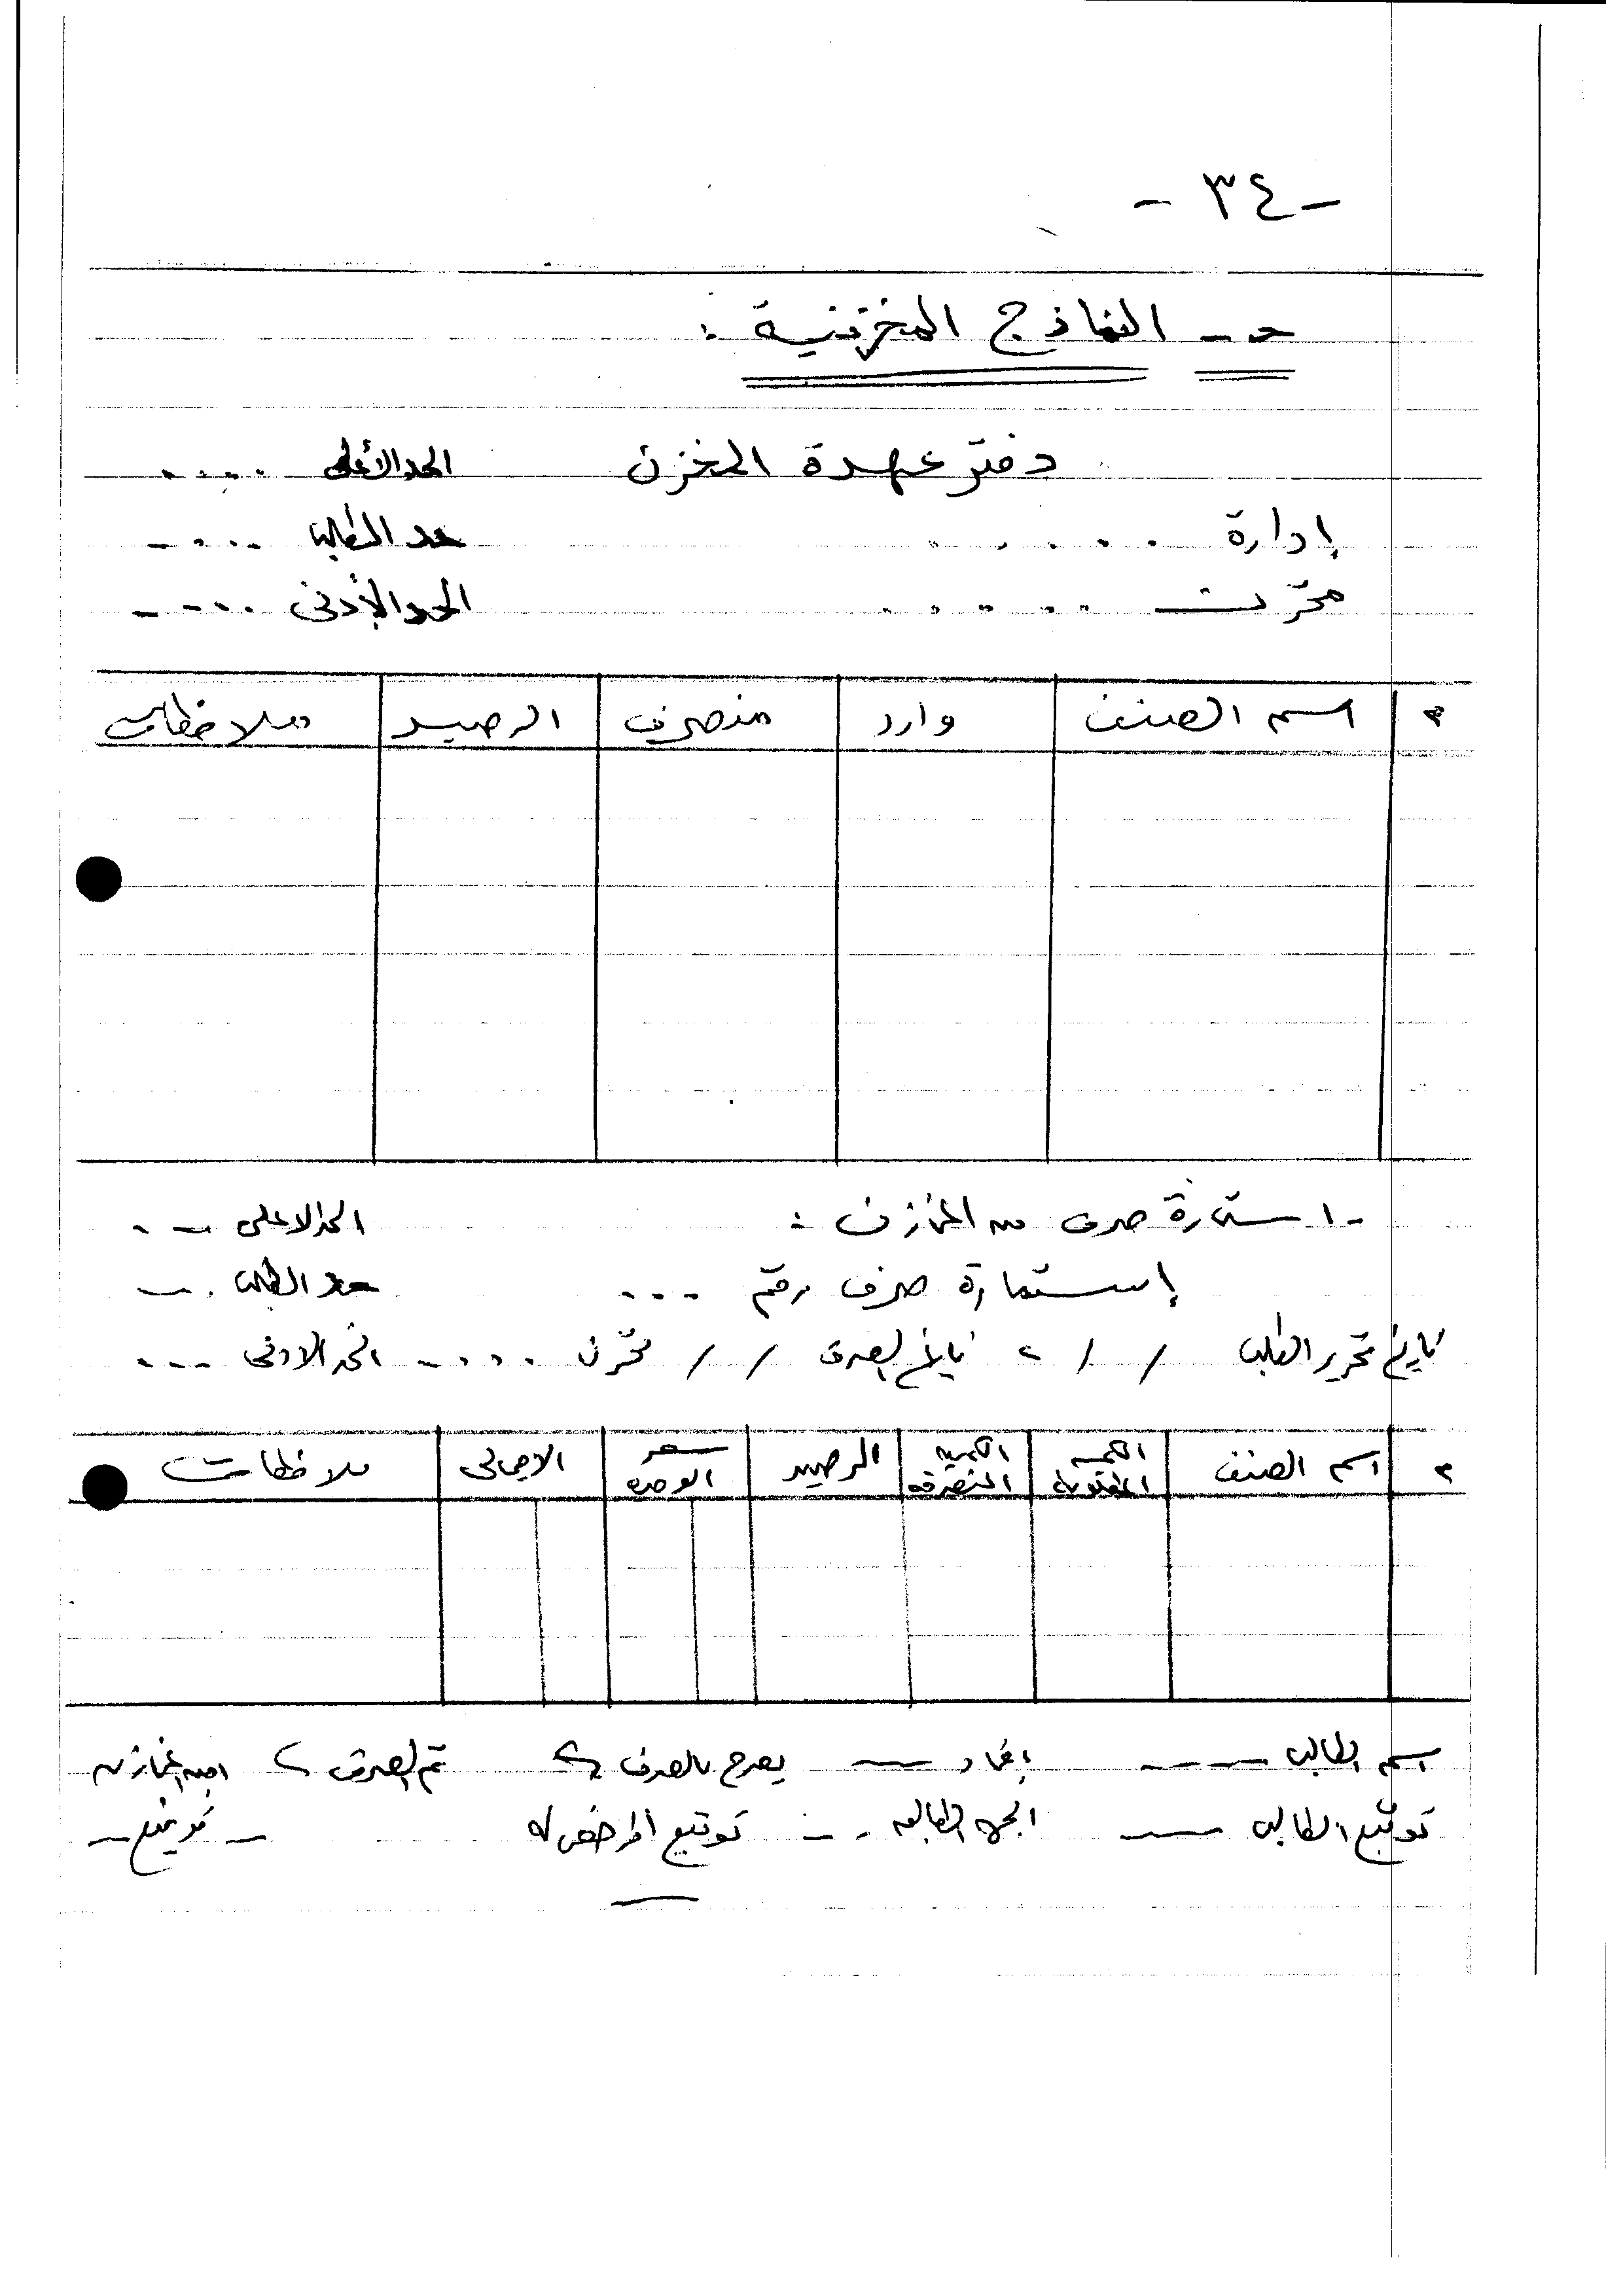 - ٣٤ -
حـ - النماذج المخزنية :
دفتر عهدة المخزن الحد الأعلى ....
إدارة ..... حد الطلب ....
مخزن ..... الحد الأدنى ....
م اسم الصنف وارد منصرف الرصيد ملاحظات
- استمارة صرف من المخازن : الحد الاعلى ..
إستمارة صرف رقم ... حد الطلب ..
تاريخ تحرير الطلب / / تاريخ الصرف / / مخزن .... الحد الادنى ...
م اسم الصنف الكميه المطلوبة الكميه المنصرفه الرصيد سعر الوحده الاجمالى ملاحظات
اسم الطالب -- يصرح بالصرف تم الصرف امين المخازن
توقيع الطالب - الجهه الطالبه -- توقيع المرخص له - توقيع -